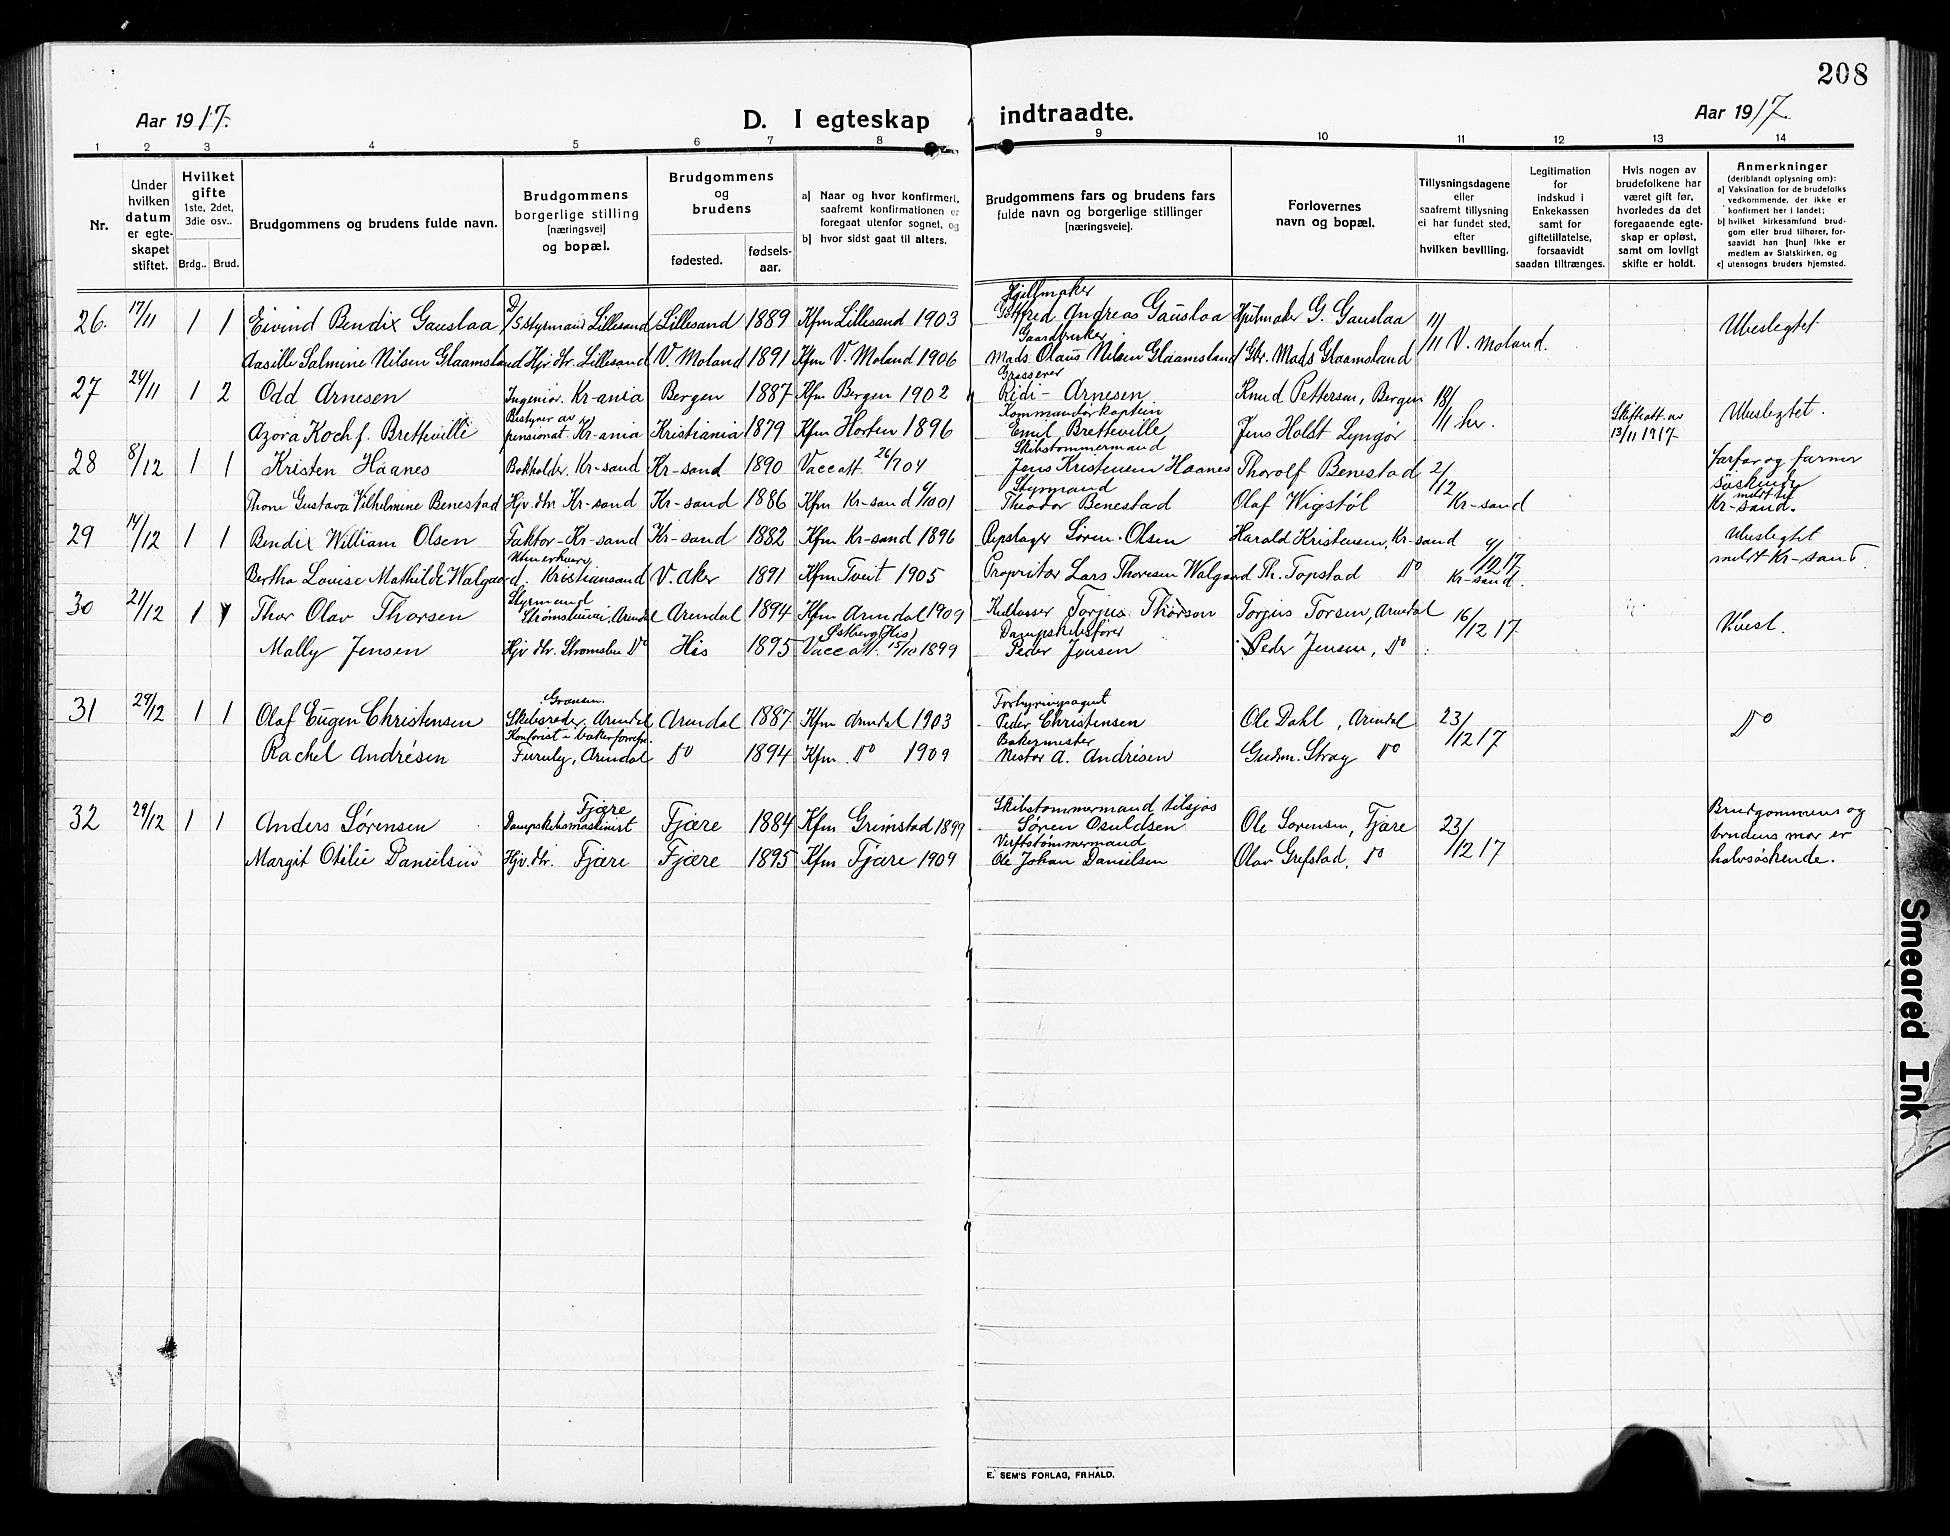 208
Aar 1917.
D. I egteskap indtraadte.
Aar 1917.
1 2 3 4 5 6 7 8 9 10 11 12 13 14
Nr.
Under hvilken datum er egteskapet stiftet.
Hvilket gifte 1ste, 2det, 3die osv..
Brdg.. Brud.
Brudgommens og brudens fulde navn.
Brudgommens borgerlige stilling [næringsvei] og bopæl.
Brudgommens og brudens
fødested. fødsels-aar.
a] Naar og hvor konfirmeri, saafremt konfirmationen er foregaat utenfor sognet, og
b] hvor sidst gaat til alters.
Brudgommens fars og brudens fars fulde navn og borgerlige stillinger [næringsveie].
Forlovernes navn og bopæl.
Tillysningsdagene eller saafremt tillysning ei har fundet sted, efter hvilken bevilling.
Legitimation for indskud i Enkekassen samt for giftetillatelse, forsaavidt saadan tiltrænges.
Hvis nogen av brudefolkene har været gift før, hvorledes da det foregaaende egteskap er opløst, samt om lovligt skifte er holdt.
Anmerkninger (deriblandt oplysning om):
a] Vaksination for de brudefolks vedkommende, der ikke er konfirmert her i landet;
b] hvilket kirkesamfund brudgom eller brud tilhører, forsaavidt han [hun] ikke er medlem av Statskirken, og
c] utensogns bruders hjemsted.
26. 17/11 1 1 Eivind Bendix Gauslaa D/S styrmand Lillesand Lillesand 1889 Kfm Lillesand 1903 Hjulmaker Gotfred Andreas Gauslaa Hjulmaker G. Gauslaa 11/11 V. Moland. Ubeslegtet
Aasille Salmine Nilsen Glaamsland Hjv. dtr. Lillesand V. Moland 1891 Kfm V. Moland 1906 Gaardbruker Mads Olaus Nilsen Glaamsland Gbr. Mads Glaamsland
27 24/11 1 2 Odd Arnesen Ingeniør. Kr-ania Bergen 1887 Kfm Bergen 1902 Grosserer Ridi - Arnesen Knud Petterson, Bergen 18/11 her. Ubeslegtet.
Azora Koch f. Bretteville Bestyrer av pensionat. Kr-ania Kristiania 1879 Kfm Horten 1896 Kommandørkaptein Emil Bretteville Jens Holst Lyngør Skifteatt. av 13/11 1917
28 8/12 1 1 Kristen Haanes Bokholder. Kr-sand Kr-sand 1890 Vacc att 26/7 04 Skibstømmermand Jens Kristensen Haanes Thorolf Benestad 2/12 Kr-sand farfar og farmor søskende meldt til Kr-sand.
Thone Gustava Vilhelmine Benestad Hjv. dtr. Kr-sand Kr-sand 1886 Kfm Kr-sand 6/10 01 Styrmand Theodor Benestad Olaf Wigstøl
29 14/12 1 1 Bendix William Olsen Faktor - Kr-sand Kr-sand 1882 Kfm Kr-sand 1896 Repslager Søren Olsen Harald Kristensen, Kr-sand 9/12 17 Kr-sand. Ubeslegtet meldt Kr-sand.
Bertha Lovise Mathilde Walgaard. Uten erhverv Kristiansand V. Aker 1891 Kfm Tveit 1905 Proprietær Lars Thoresen Walgaard Th. Topstad Do
30 21/12 1 1 Thor Olav Thorsen Styrmand Strømsbuvei, Arendal Arendal 1894 Kfm Arendal 1909 Kullosser Torjus Thorson Torjus Torsen, Arendal 16/12 17. Ubesl.
Mally Jensen Hjv. dtr. Strømsbu Do His 1895 Vacc att. 15/10 1899 Østberg (His) Dampskibsfører Peder Jensen Peder Jensen, Do
31 29/12 1 1 Olaf Eugen Christensen Skibsreder, Arendal Arendal 1887 Kfm Arendal 1903 Forhyringsagent Peder Christensen Ole Dahl, Arendal 23/12 17 Do
Rachel Andrésen Furuby, Arendal Do 1894 Kfm. Do 1909 Bakermester Nestor A. Andrésen Gudm. Stray Do
32 29/12 1 1 Anders Sørensen Fjære Dampskibsmaskinist Fjære 1884 Kfm Grimstad 1899 Skibstømmermand tilsjøs Søren Osuldsen Ole Sørensen, Fjære 23/12 17 Brudgommens og brudens mor er halvsøskende.
Margit Otilie Danielsen Hjv. dtr. Fjære Fjære 1895 Kfm Fjære 1909 Verftstømmermand Ole Johan Danielsen Olav Grefstad, Do
E. SEM'S FORLAG, FR.HALD.
Smeared Ink